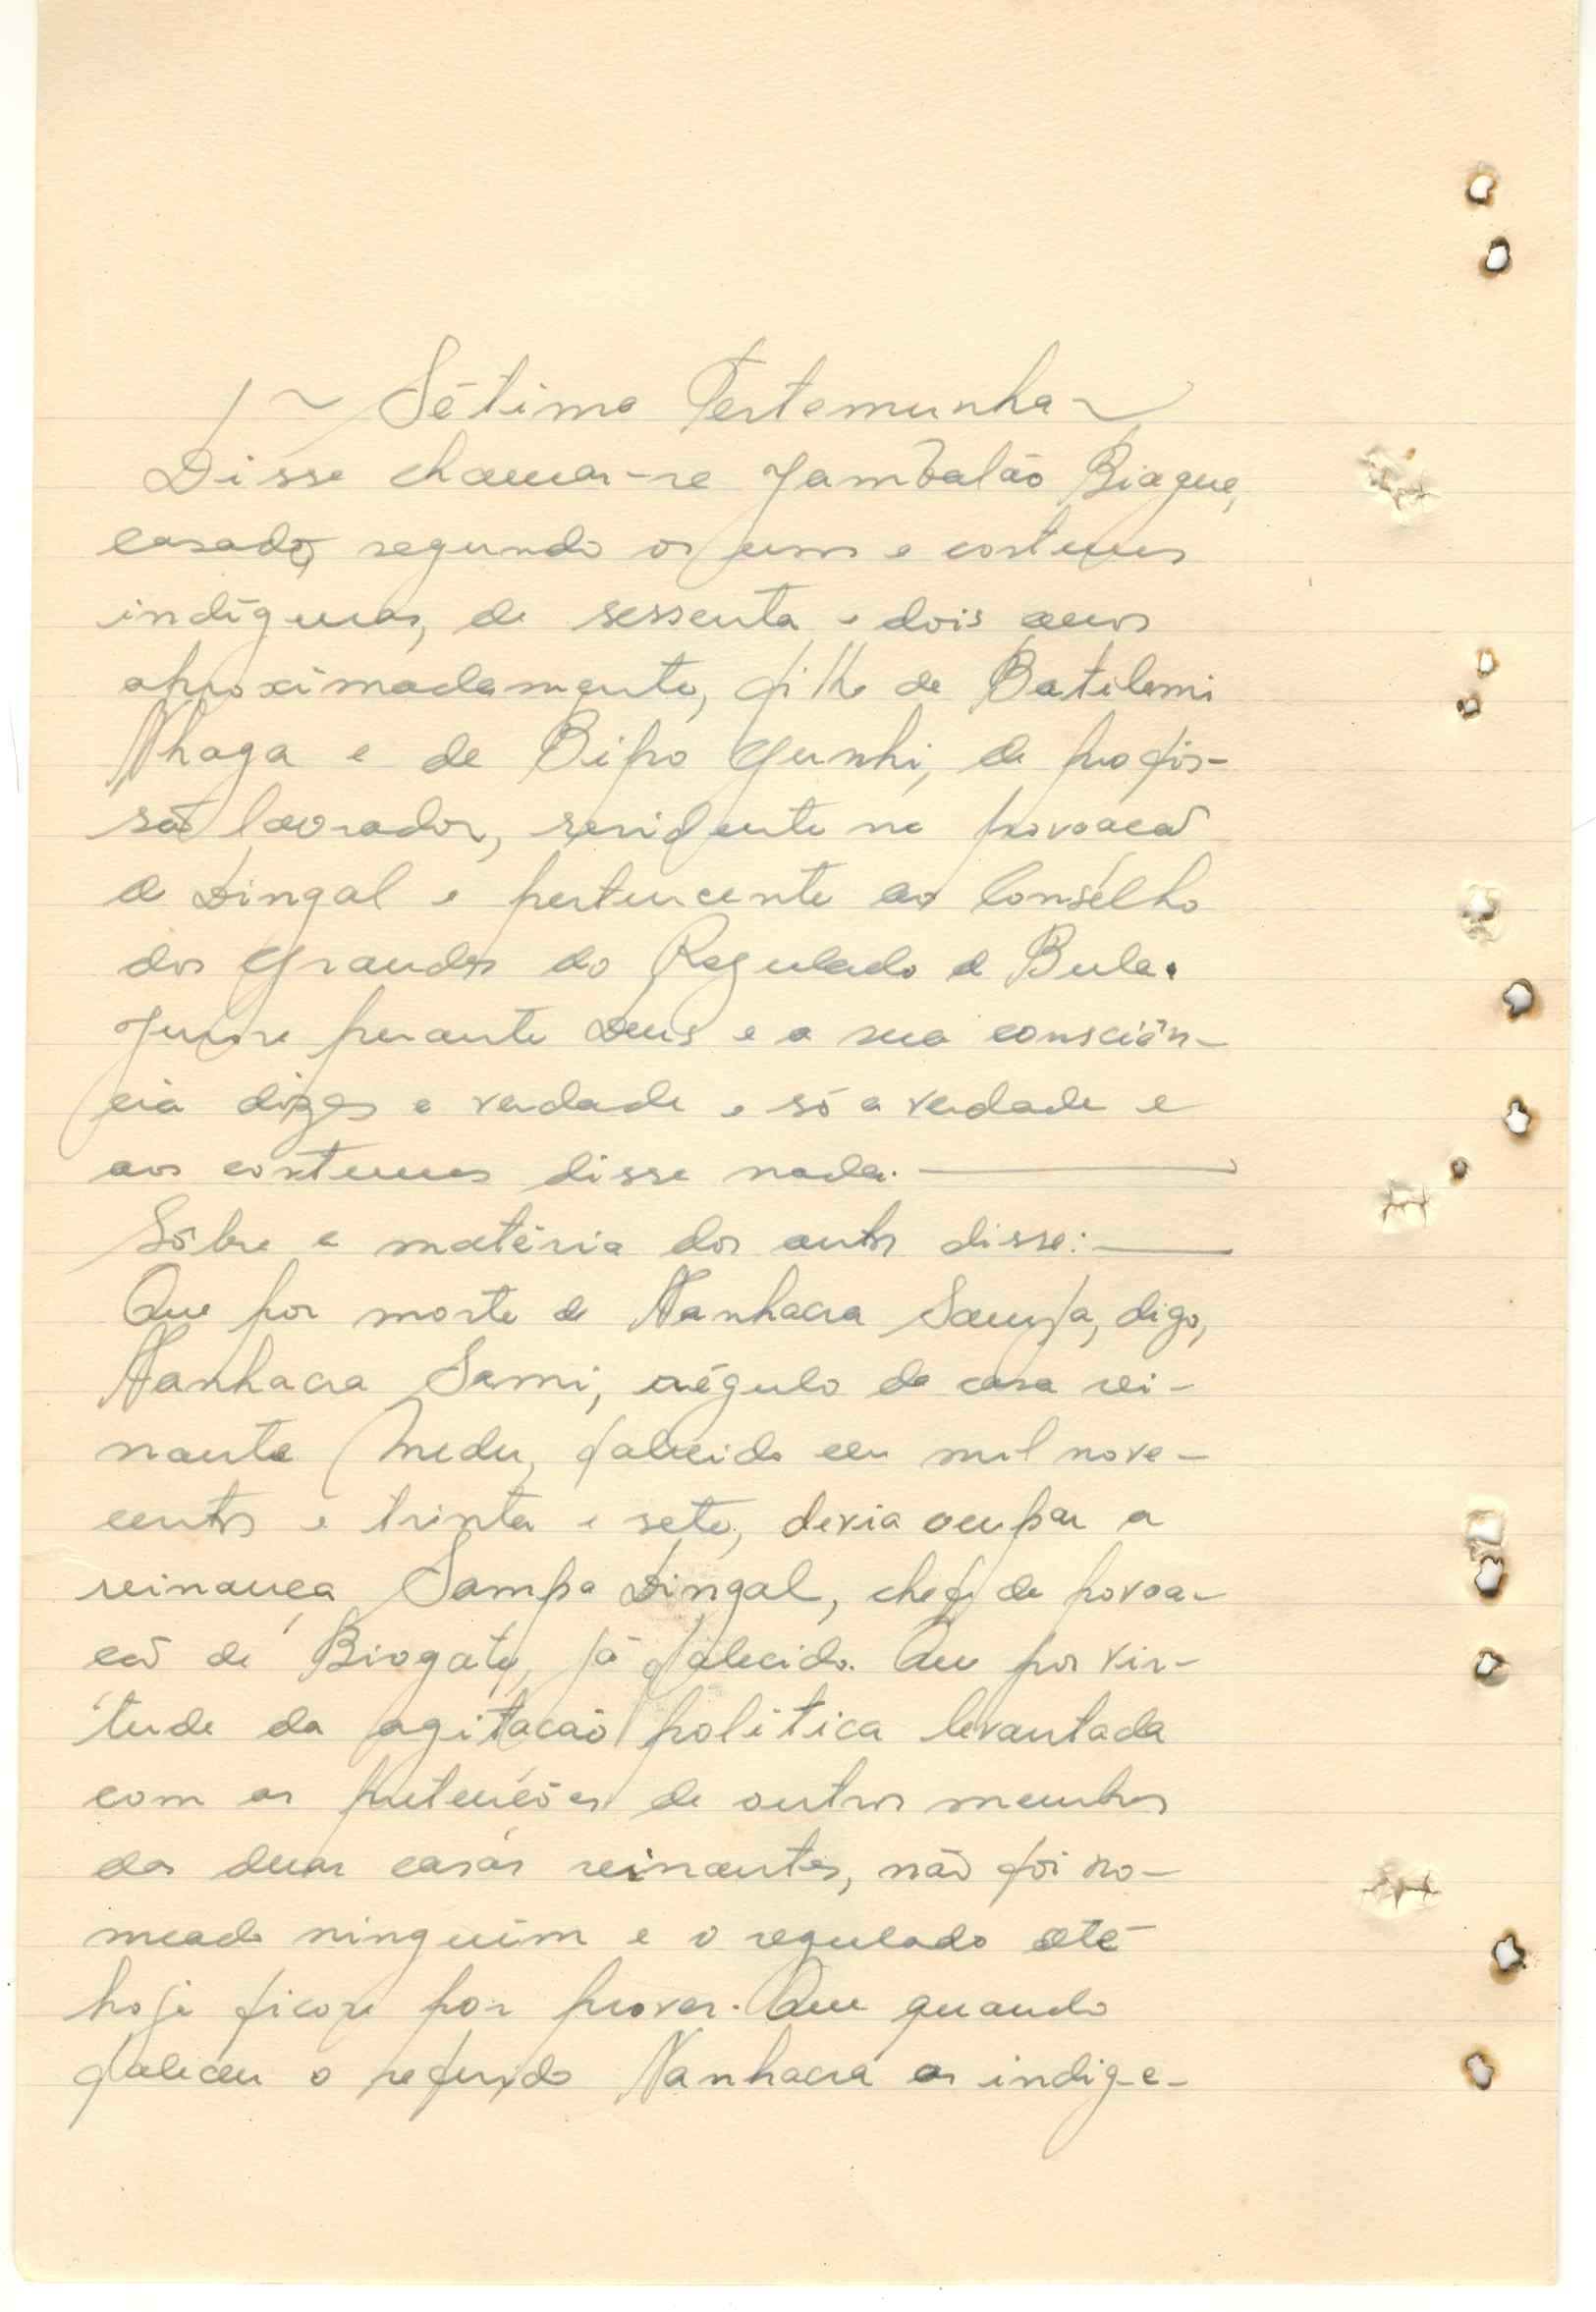 Sétima Testemunha
Disse chamar-se Jambalão Biague,
casado, segundo os usos e costumes
indígenas, de sessenta e dois anos
aproximadamente, filho de Batilemi
Nhaga e de Bipo Gunhi, de profis-
são lavrador, residente na povoação
de Dingal e pertencente ao Consêlho
dos Grandes do Regulado de Bula.
Jurou perante Deus e a sua consciên-
cia dizer a verdade e só a verdade e
aos costumes disse nada.
Sôbre a matéria dos autos disse:
Que por morte de Nanhacra Sampa, digo,
Nanhacra Sami, régulo da casa rei-
nante Medu, falecido em mil nove-
centos e trinta e sete, devia ocupar a
reinança Sampa Dingal, chefe de povoa-
ção de Biogate, já falecido. Que por vir-
tude da agitação política levantada
com as pretenções de outros membros
das duas casas reinantes, não foi no-
meado ninguém e o regulado até
hoje ficou por prover. Que quando
faleceu o referido Nanhacra os indige-